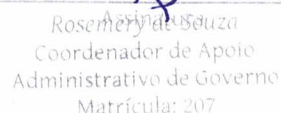 Assinatura
Rosemery de Souza
Coordenador de Apoio
Administrativo de Governo
Matrícula: 207